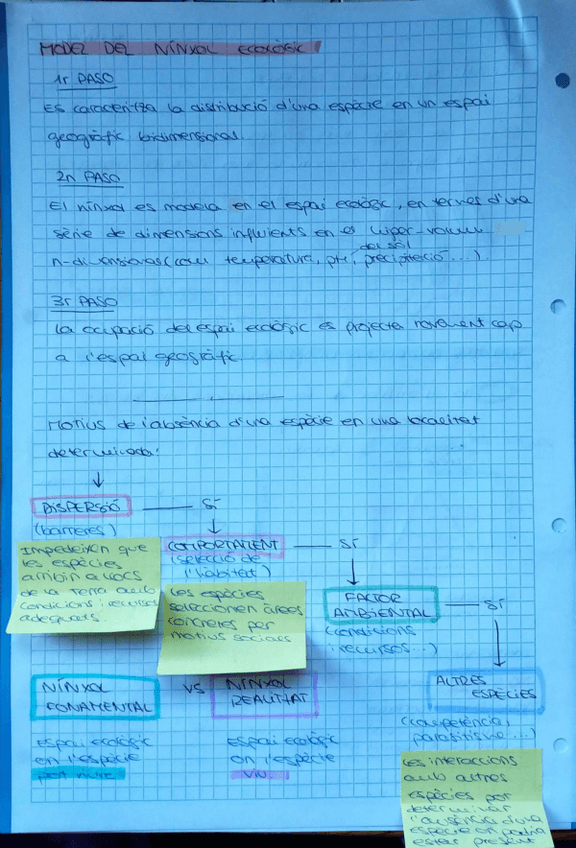 MODEL DEL NÍNXOL ECOLÒGIC
1r PASO
Es caracteritza la distribució d'una espècie en un espai
geogràfic bidimensional.
2n PASO
El nínxol es modela en el espai ecològic, en termes d'una
sèrie de dimensions influients en el hiper-volum
del sòl
n-dimensional (com temperatura, pH, precipitació...).
3r PASO
La ocupació del espai ecològic es projecta novament cap
a l'espai geogràfic.
Motius de l'absència d'una espècie en una localitat
determinada:
DISPERSIÓ — SÍ
(barreres)
Impedeixen que
les espècies
ambin a llocs
de la terra amb
condicions i recursos
adequats.
COMPORTAMENT — SÍ
(selecció de
l'hàbitat)
Les espècies
seleccionen àrees
concretes per
motius socials
FACTOR
AMBIENTAL — SÍ
(condicions
i recursos..)
ALTRES
ESPÈCIES
(competència,
parasitisme...)
Les interaccions
amb altres
espècies por
determinar
l'ausència d'una
espècie on podria
estar present
NÍNXOL
FONAMENTAL
VS
NÍNXOL
REALITZAT
espai ecològic
on l'espècie
pot viure
espai ecològic
on l'espècie
viu.